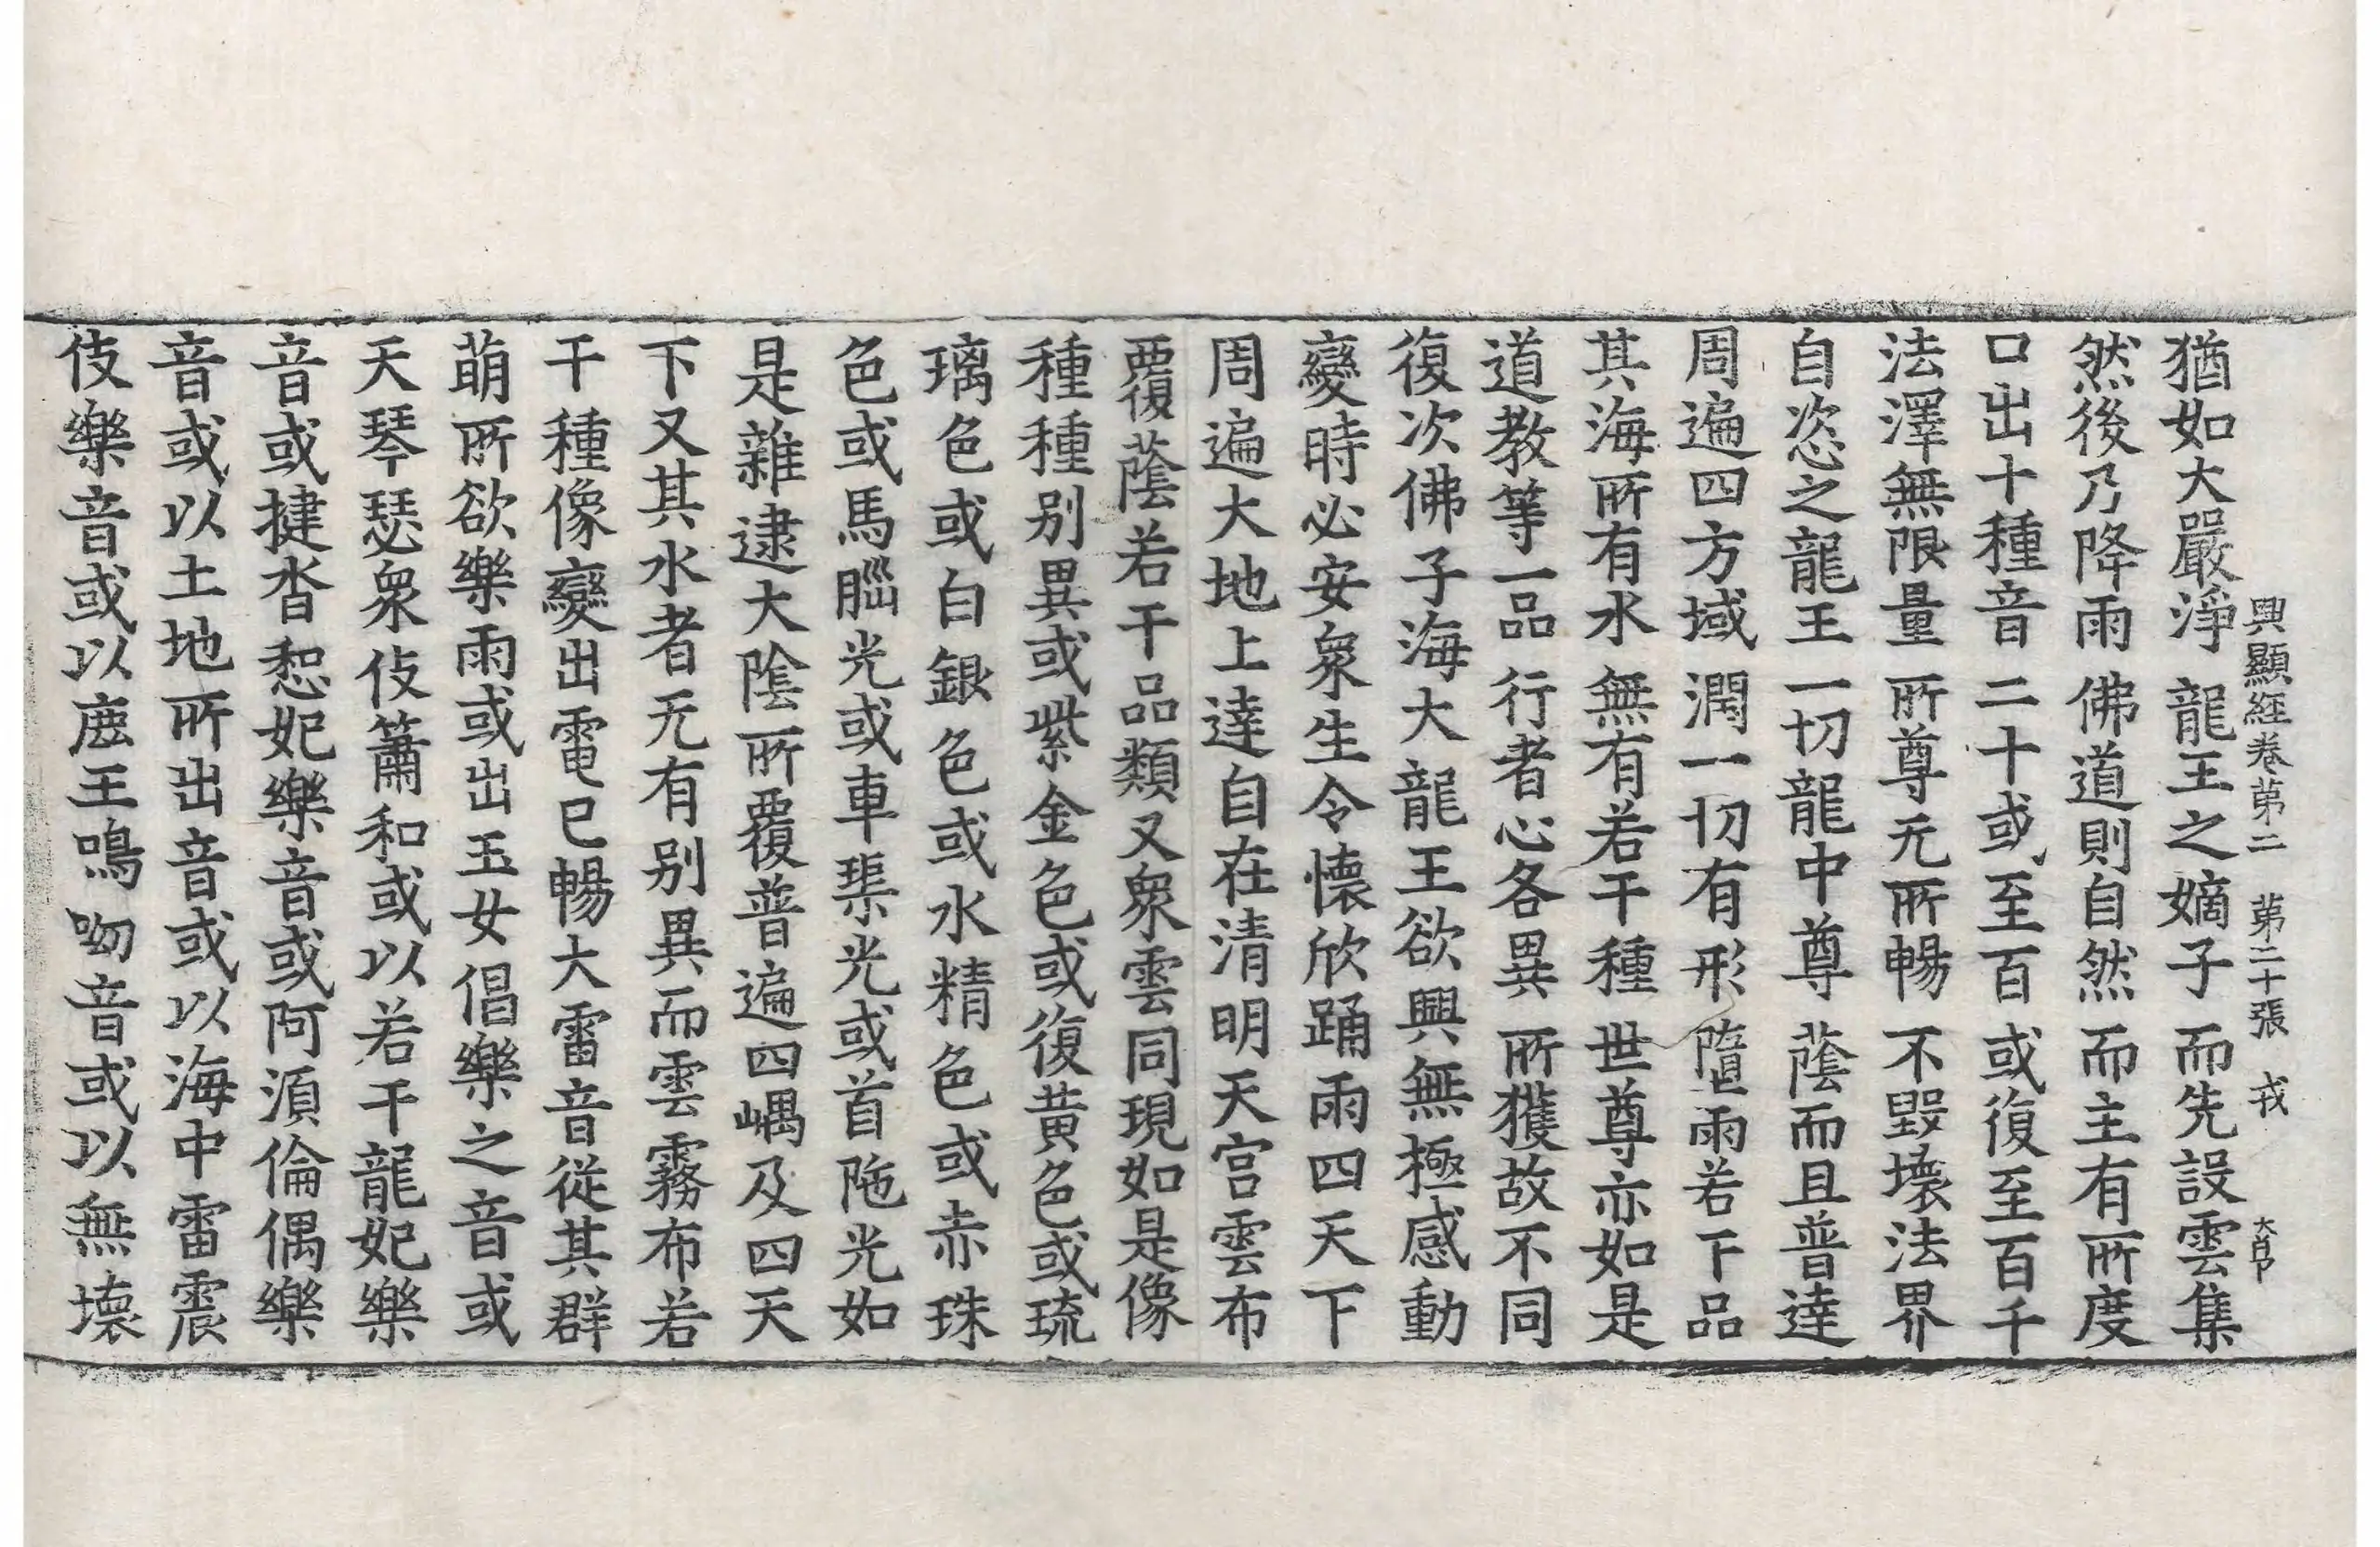 興顯經卷苐二 苐二十張 戎
猶如大嚴淨 龍王之嫡子 而先設雲集
然後乃降雨 佛道則自然 而主有所度
口出十種音 二十或至百 或復至百千
法澤無限量 所尊无所暢 不毀壞法界
自恣之龍王 一切龍中尊 蔭而且普達
周遍四方域 潤一切有形 墮雨若下品
其海所有水 無有若干種 世尊亦如是
道教等一品 行者心各異 所獲故不同
復次佛子海大龍王欲興無極感動
變時必安衆生令懷欣踊雨四天下
周遍大地上達自在清明天宮雲布
覆蔭若干品類又衆雲同現如是像
種種别異或紫金色或復黃色或琉
璃色或白銀色或水精色或赤珠
色或馬腦光或車璖光或首陁光如
是雜逮大陰所覆普遍四嵎及四天
下又其水者无有别異而雲霧布若
干種像變出電已暢大雷音從其群
萌所欲樂雨或出玉女倡樂之音或
天琴瑟衆伎簫和或以若干龍妃樂
音或揵沓惒妃樂音或阿須倫偶樂
音或以土地所出音或以海中雷震
伎樂音或以鹿王鳴呦音或以無壞